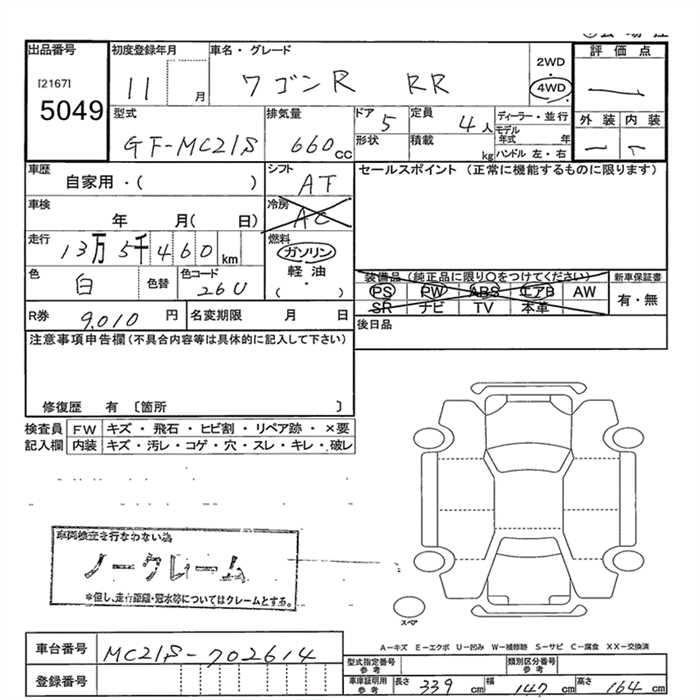 出品番号 初度登録年月 車名・グレード 2WD 評価点
[2167] 11 月 ワゴンR RR 4WD
5049
型式 排気量 ドア 定員 ディーラー・並行 外装 内装
GF-MC21S 660cc 5 4人 モデル年式 年
形状 積載 kg ハンドル 左・右
車歴 シフト セールスポイント (正常に機能するものに限ります)
自家用・( ) AT
車検 冷房
年 月( 日) AC
走行 燃料
13万5千460km ガソリン
色 色替 色コード 軽油 装備品 (純正品に限り○をつけてください) 新車保証書
白 26U ( ・ ) PS PW ABS エアB AW 有・無
R券 9,010円 名変期限 月 日 SR ナビ TV 本革
後日品
注意事項申告欄(不具合内容等は具体的に記入して下さい)
修復歴 有 〔箇所 〕
検査員 FW キズ・飛石・ヒビ割・リペア跡・×要
記入欄 内装 キズ・汚レ・コゲ・穴・スレ・キレ・破レ
車両検査を行なわない為
ノークレーム
※但し、走行距離・冠水等についてはクレームとする。
スペア
A-キズ E-エクボ U-凹み W-補修跡 S-サビ C-腐食 XX-交換済
車台番号 MC21S-702614
型式指定番号 参考 類別区分番号 参考
登録番号 車庫証明用 参考 長さ 339cm 幅 147cm 高さ 164cm